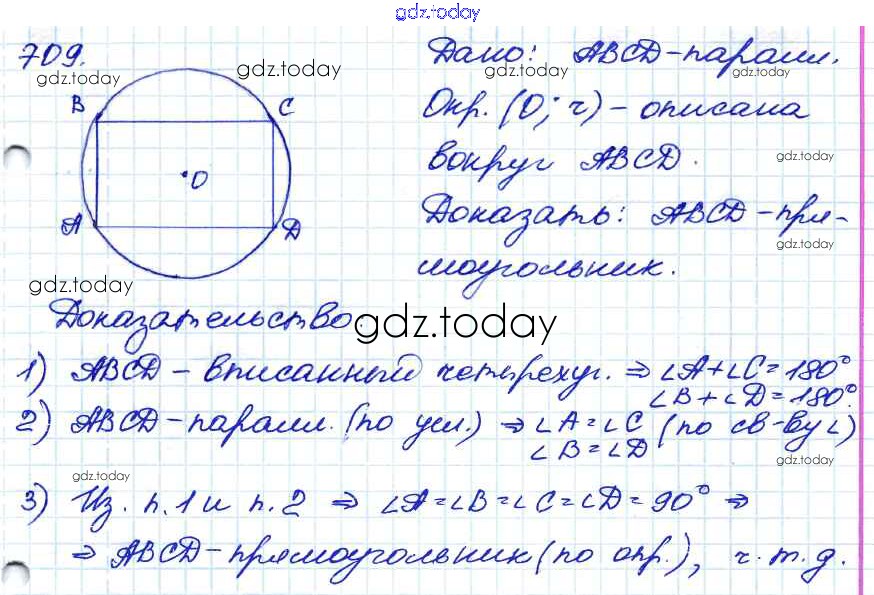 gdz.today
709.
gdz.today
gdz.today
B C
O
A D
gdz.today
Дано: ABCD-паралл.
gdz.today
Окр. (O; r) - описана
вокруг ABCD.
gdz.today
Доказать: ABCD-пря-
gdz.today
моугольник.
Доказательство.
gdz.today
1) ABCD - вписанный четырехуг. ⇒ ∠A+∠C=180°
∠B+∠D=180°.
2) ABCD-паралл. (по усл.) ⇒ ∠A=∠C (по св-ву ∠)
∠B=∠D
gdz.today
gdz.today
3) Из. п.1 и п.2 ⇒ ∠A=∠B=∠C=∠D=90° ⇒
⇒ ABCD-прямоугольник (по опр.), ч.т.д.